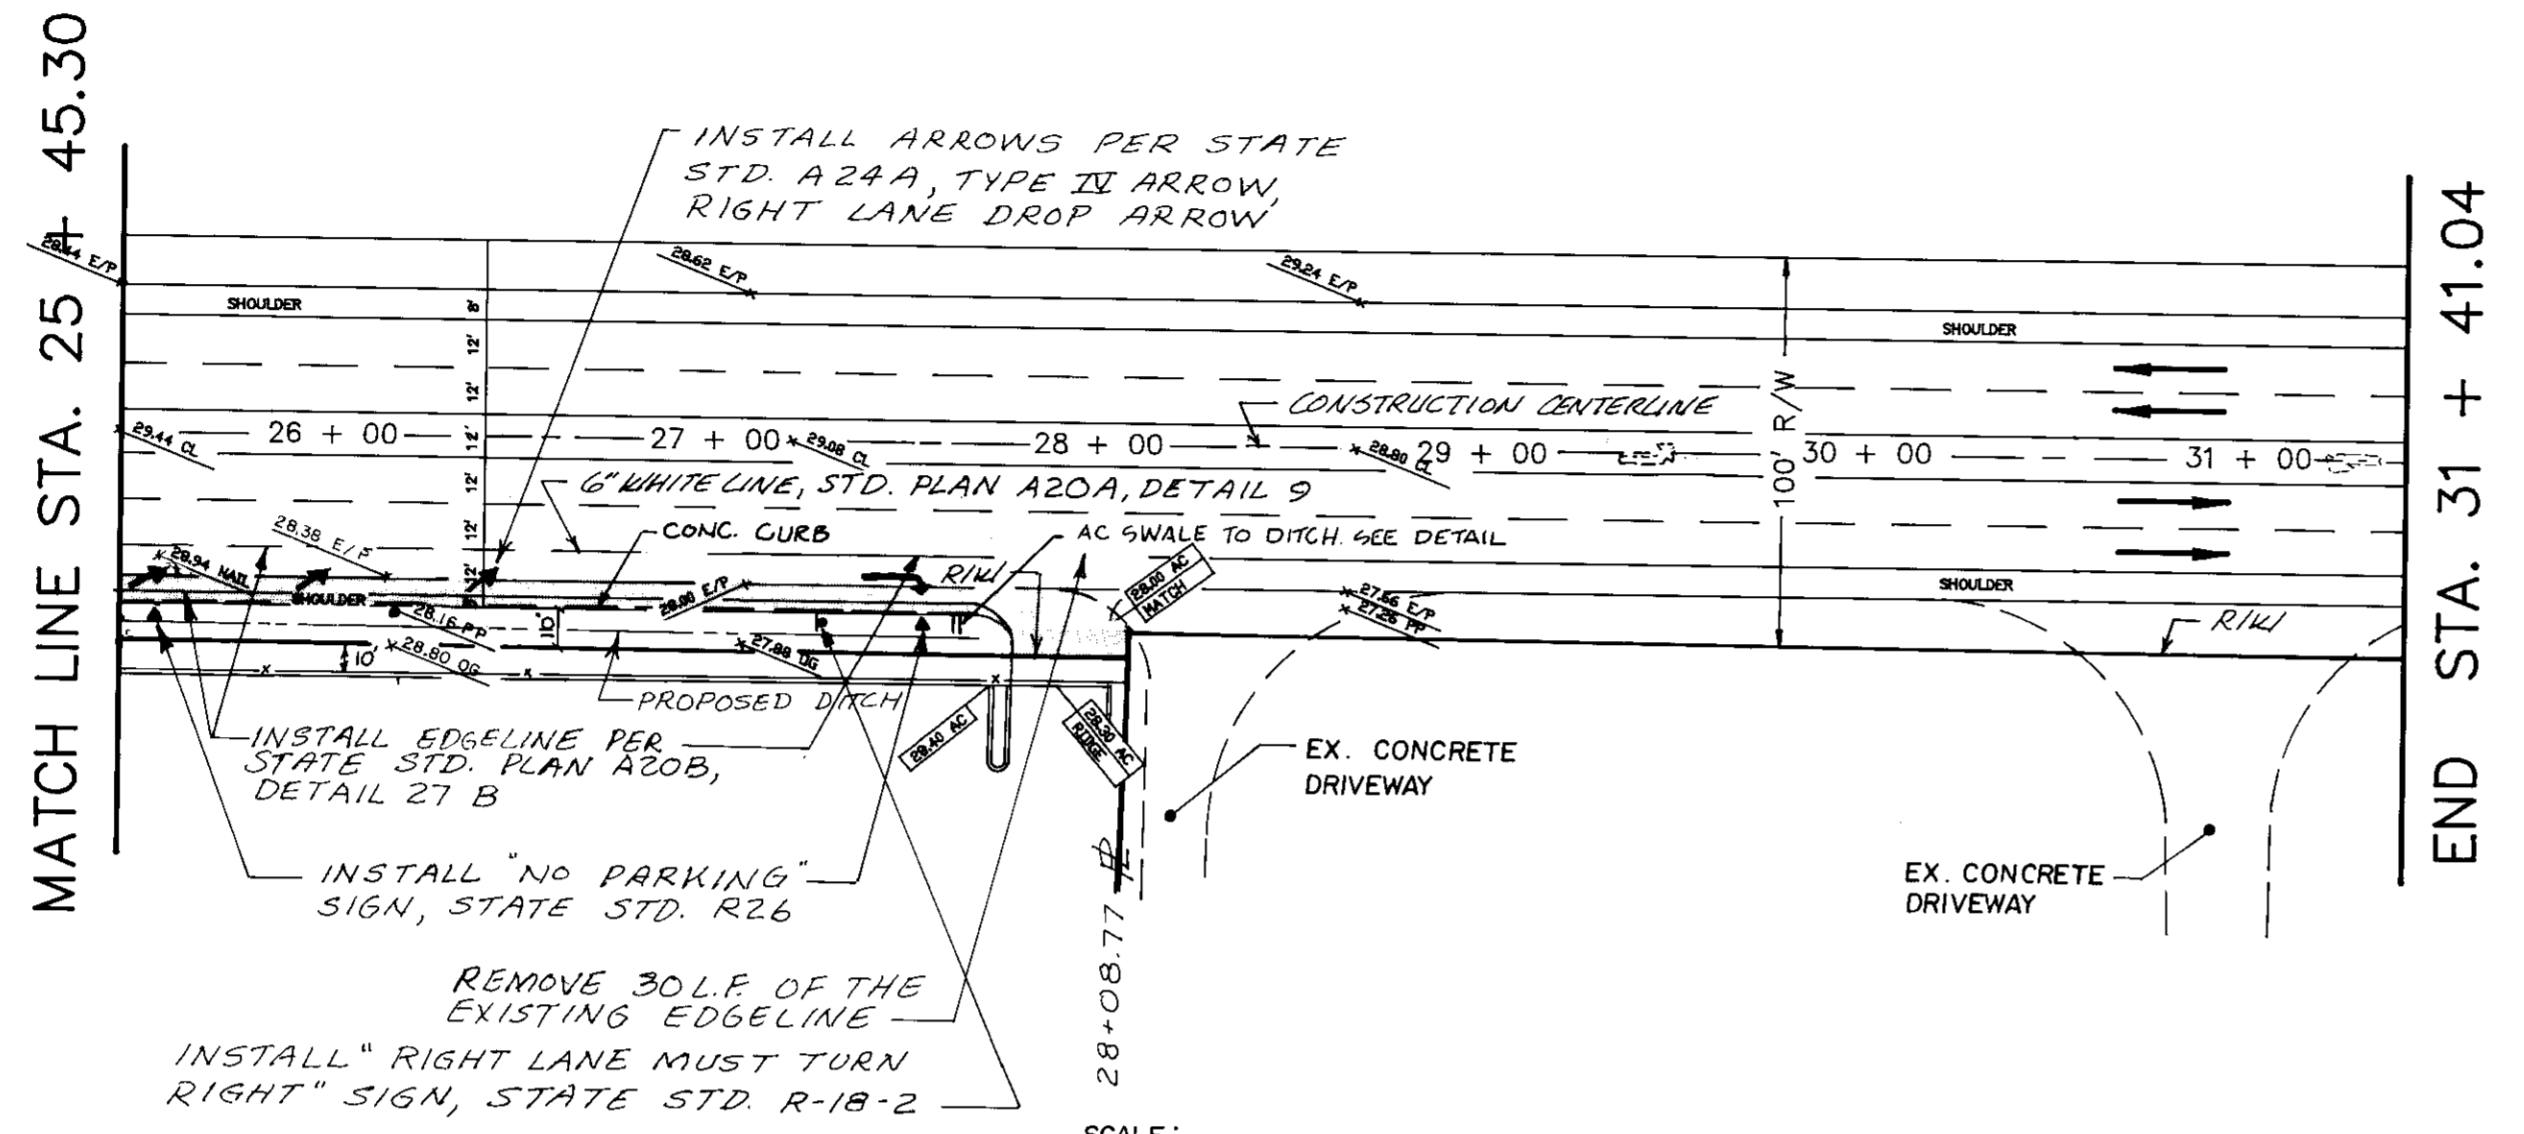 MATCH LINE STA. 25 + 45.30
INSTALL ARROWS PER STATE
STD. A24A, TYPE IV ARROW,
RIGHT LANE DROP ARROW
28.44 E/P
28.62 E/P
29.24 E/P
SHOULDER
SHOULDER
8'
12'
12'
12'
12'
12'
12'
8'
100' R/W
CONSTRUCTION CENTERLINE
29.44 CL
26 + 00
27 + 00
29.08 CL
28 + 00
28.80 CL
29 + 00
30 + 00
31 + 00
6" WHITE LINE, STD. PLAN A20A, DETAIL 9
28.38 E/P
CONC. CURB
AC SWALE TO DITCH. SEE DETAIL
28.94 NAIL
SHOULDER
28.16 PP
28.00 E/P
R/W
28.00 AC
MATCH
27.66 E/P
27.26 PP
SHOULDER
R/W
10'
10'
28.80 OG
27.98 OG
PROPOSED DITCH
28.40 AC
28.30 AC
RIDGE
INSTALL EDGELINE PER
STATE STD. PLAN A20B,
DETAIL 27 B
EX. CONCRETE
DRIVEWAY
INSTALL "NO PARKING"
SIGN, STATE STD. R26
EX. CONCRETE
DRIVEWAY
REMOVE 30 L.F. OF THE
EXISTING EDGELINE
INSTALL "RIGHT LANE MUST TURN
RIGHT" SIGN, STATE STD. R-18-2
28+08.77 PL
SCALE:
END STA. 31 + 41.04